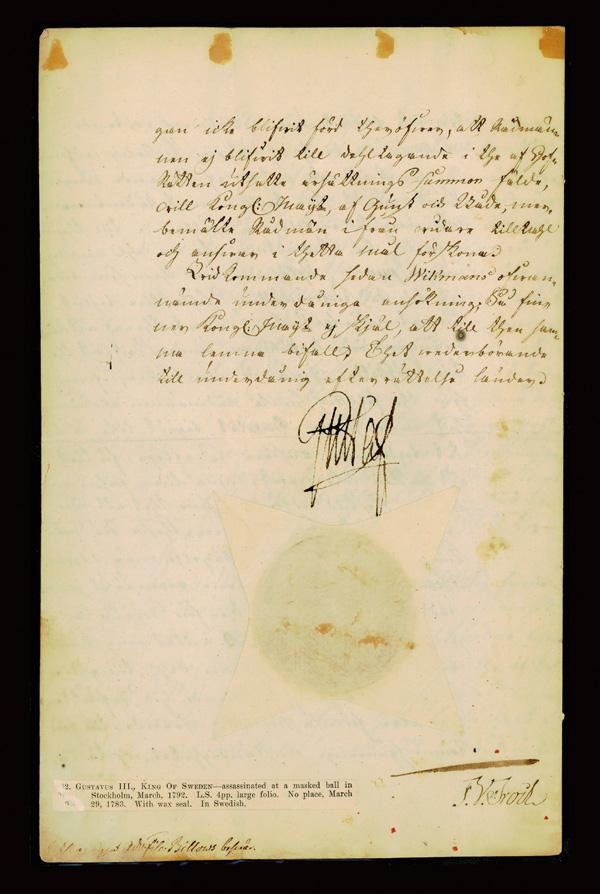 gon icke blifvit hörd theröfver, att Rådmän-
nen ej blifvit till deltagande i the af Hof-
Rätten ersättnings summor fälde,
Kongl: Maijt, af Gunst och Nåde,
bemälte Rådmän ifrån vidare tilltahl
och ansvar i thetta mål förskona.
Widkommande sedan Wikmans ofvan-
nämde underdåniga ansökning; Så fin-
ner Kongl: Maijt ej skjäl, att till then sam-
ma lemna bifall. Thet wederbörande
till underdånig efterrättelse länder.
Gustaf
GUSTAVUS III., KING OF SWEDEN—assassinated at a masked ball in
Stockholm, March, 1792. L.S. 4pp. large folio. No place, March
29, 1783. With wax seal. In Swedish.